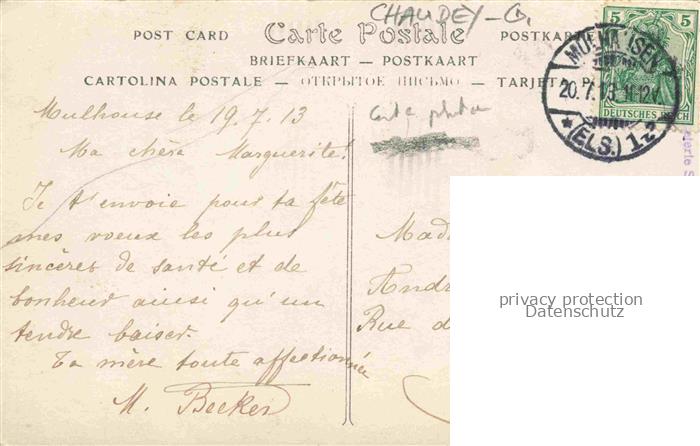 CHAUDEY-G.
POST CARD Carte Postale POSTKAR
BRIEFKAART — POSTKAART
CARTOLINA POSTALE — ОТКРЫТОЕ ПИСЬМО — TARJETA P
5 5
DEUTSCHES REICH
20.7.13. 11-12V
(ELS.) 1
Mulhouse le 19.7.13
carte photo
Ma chère Marguerite!
Je t'envoie pour ta fête
mes voeux les plus
sincères de santé et de
bonheur ainsi qu'un
tendre baiser.
Ta mère toute affectionnée
M. Becker
Mad
André
Rue d
privacy protection
Datenschutz